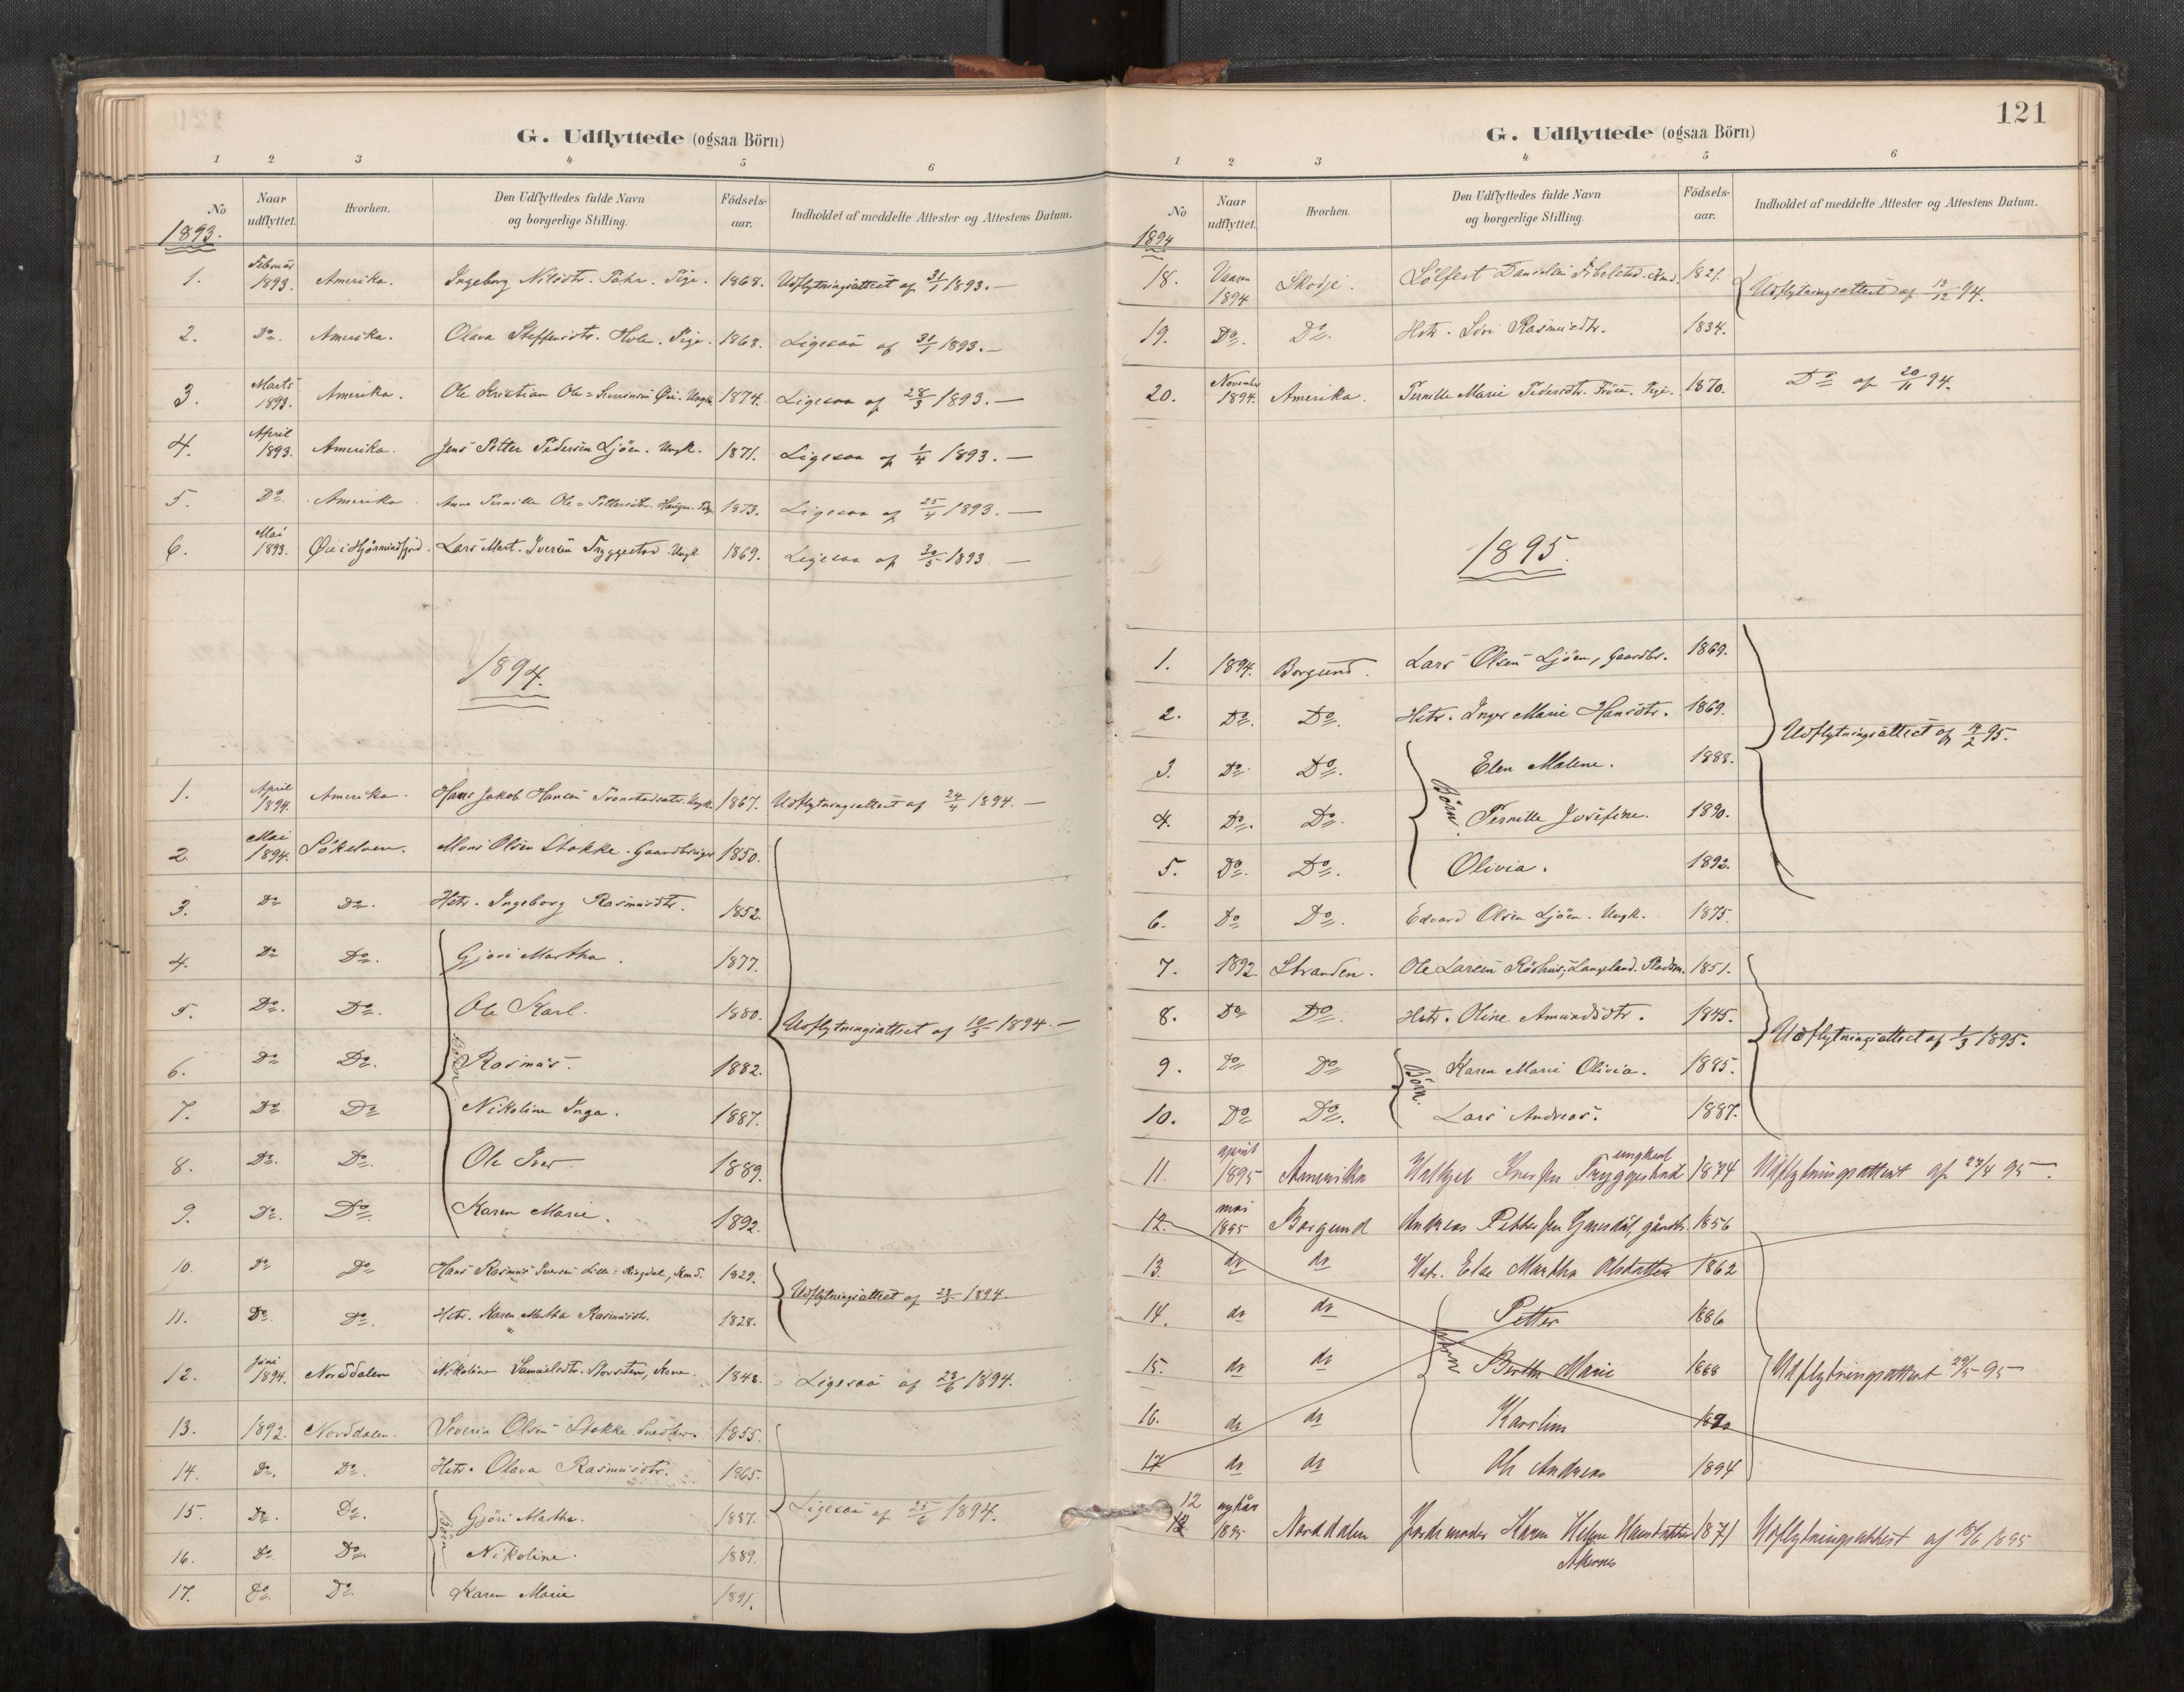 G. Udflyttede (ogsaa Börn)
1 2 3 4 5 6
No Naar udflyttet. Hvorhen. Den Udflyttedes fulde Navn og borgerlige Stilling. Födsels-aar. Indholdet af meddelte Attester og Attestens Datum.
1893.
1. Februar 1893. Amerika. Ingeborg Nilsdtr. Pige. 1868. Udflytningsattest af 31/1 1893. —
2. Do. Amerika. Olava Steffensdtr. Hole. Pige. 1868. Ligesaa af 31/1 1893. —
3. Marts 1893. Amerika. Ole Kristian Ole-Severinsen Øie. Ungk. 1874. Ligesaa af 28/3 1893. —
4. April 1893. Amerika. Jens Petter Pedersen Ljöen. Ungk. 1871. Ligesaa af 1/4 1893. —
5. Do. Amerika Anne Pernille Ole-Pettersdtr. Haugen. Pige 1873. Ligesaa af 25/4 1893. —
6. Mai 1893. Øie i Hjörundfjord. Lars Mart. Iversen Tryggestad. Ungk. 1869. Ligesaa af 30/5 1893 —
1894.
1. April 1894. Amerika. Hans Jakob Hansen Ungk. 1867. Udflytningsattest af 24/4 1894. —
2. Mai 1894. Sökelven. Mons Olsen Stokke. Gaardbruger 1850.
3. Do Do. Hstr. Ingeborg Rasmusdtr. 1852.
4. Do Do. Gjöri Martha. 1877.
5. Do. Do. Ole Karl. 1880. Udflytningsattest af 10/5 1894. —
Börn
6. Do Do. Rasmus. 1882.
7. Do Do Nikoline Inga. 1887.
8. Do. Do. Ole Iver. 1889.
9. Do. Do. Karen Marie. 1892.
10. Do Do Hans Rasmus Iversen Lille-Ringdal, Kmd. 1829.
Udflytningsattest af 23/5 1894.
11. Do. Do. Hstr. Karen Martha Rasmusdtr. 1828.
12. Juni 1894. Norddalen Nikoline Samuelsdtr. Kone. 1848. Ligesaa af 23/6 1894.
13. 1892. Norddalen. Severin Olsen Stokke 1855.
14. Do. Do. Hstr. Olava Rasmusdtr. 1865.
15. Do. Do. Gjöri Martha. 1887. Ligesaa af 25/6 1894.
Börn
16. Do Do Nikoline. 1889.
17. Do. Do. Karen Marie 1891.
121
G. Udflyttede (ogsaa Börn)
1 2 3 4 5 6
No Naar udflyttet. Hvorhen Den Udflyttedes fulde Navn og borgerlige Stilling. Födsels-aar. Indholdet af meddelte Attester og Attestens Datum.
1894
18. Vaaren 1894 Skodje. Sölfest Danielsen Kmd. 1821. Udflytningsattest af 13/12 94.
19. Do. Do. Hstr. Siri Rasmusdtr. 1834.
20. November 1894. Amerika. Pernille Marie Pedersdtr. Pige. 1870. Do af 20/11 94.
1895.
1. 1894. Borgund. Lars Olsen Ljöen, Gaardbr. 1869.
2. Do. Do. Hstr. Inger Marie Hansdtr. 1869.
Udflytningsattest af 19/2 95.
3. Do. Do. Elen Malene. 1888.
Börn.
4. Do. Do. Pernille Josefine. 1890.
5. Do. Do. Olivia. 1892.
6. Do Do. Edvard Olsen Ljöen. Ungk. 1875.
7. 1892 Stranden. Ole Larsen Röshus, Langeland. Pladsm. 1851.
8. Do Do. Hstr. Oline Amundsdtr. 1845.
Udflytningsattest af 1/3 1895.
9. Do Do Karen Marie Olivia. 1885.
Börn.
10. Do Do. Lars Andreas. 1887.
11. april 1895 Amerika Iversen Tryggestad ungkarl 1874 Udflytningsattest af 23/4 95 —
12. mai 1895 Borgund Andreas Pettersen gårdbr. 1856
13. do do Hstr. Else Martha Olsdatter 1862
14. do do Petter 1886
15. do do Berthe Marie 1888 Udflytningsattest 29/5 95
börn
16. do do Karoline 1890
17 do do Ole Andreas 1894
12 nyttår 1895 Norddalen Jordemoder Karen Helene Hansdatter 1871 Udflytningsattest af 18/6 1895
Akernes